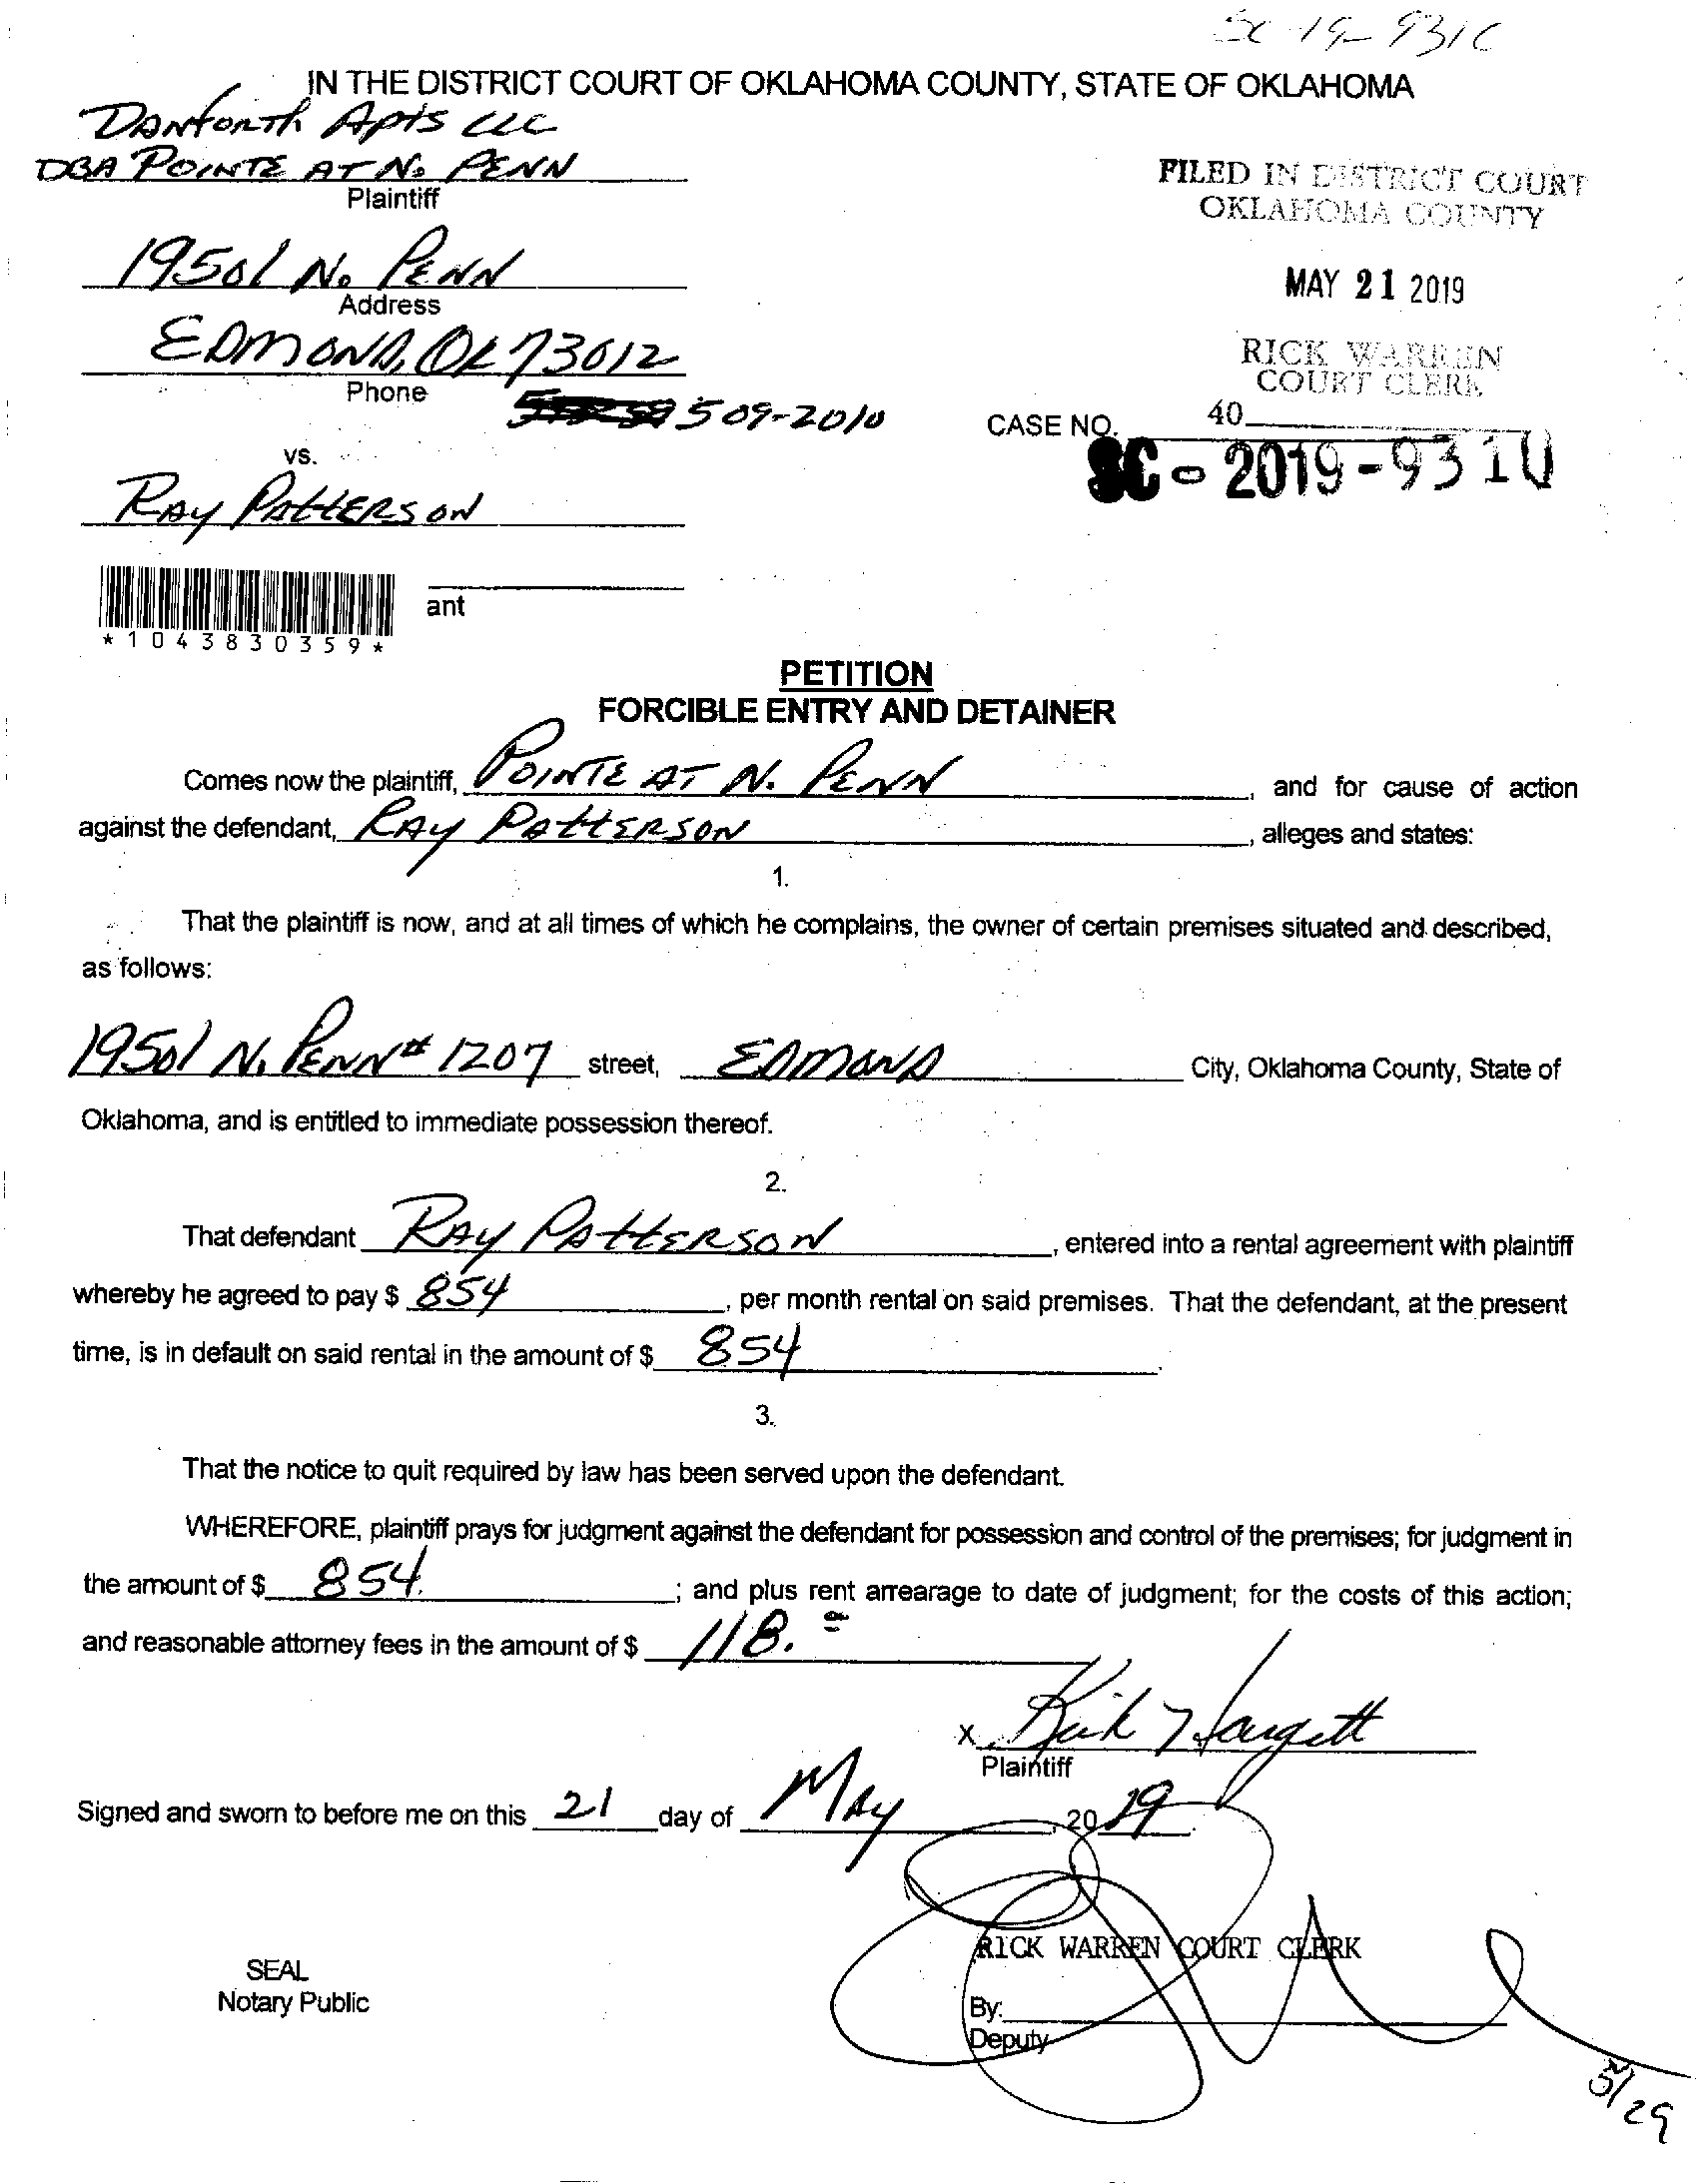 SC-19-9310
IN THE DISTRICT COURT OF OKLAHOMA COUNTY, STATE OF OKLAHOMA
Danforth Apts LLC
DBA Pointe at No Penn
Plaintiff
FILED IN DISTRICT COURT
OKLAHOMA COUNTY
19501 No Penn
Address
MAY 21 2019
Edmond, OK 73012
Phone
RICK WARREN
COURT CLERK
509-2010
40
CASE NO.
SC-2019-9310
vs.
Ray Patterson
ant
*1043830359*
PETITION
FORCIBLE ENTRY AND DETAINER
Comes now the plaintiff, Pointe at N. Penn, and for cause of action
against the defendant, Ray Patterson, alleges and states:
1.
That the plaintiff is now, and at all times of which he complains, the owner of certain premises situated and described,
as follows:
19501 N. Penn # 1207 street, Edmond City, Oklahoma County, State of
Oklahoma, and is entitled to immediate possession thereof.
2.
That defendant Ray Patterson, entered into a rental agreement with plaintiff
whereby he agreed to pay $ 854, per month rental on said premises. That the defendant, at the present
time, is in default on said rental in the amount of $ 854.
3.
That the notice to quit required by law has been served upon the defendant.
WHEREFORE, plaintiff prays for judgment against the defendant for possession and control of the premises; for judgment in
the amount of $ 854.; and plus rent arrearage to date of judgment; for the costs of this action;
and reasonable attorney fees in the amount of $ 118.00
X Hargett
Plaintiff
Signed and sworn to before me on this 21 day of May, 2019.
RICK WARREN COURT CLERK
SEAL
Notary Public
By:
Deputy
5/29